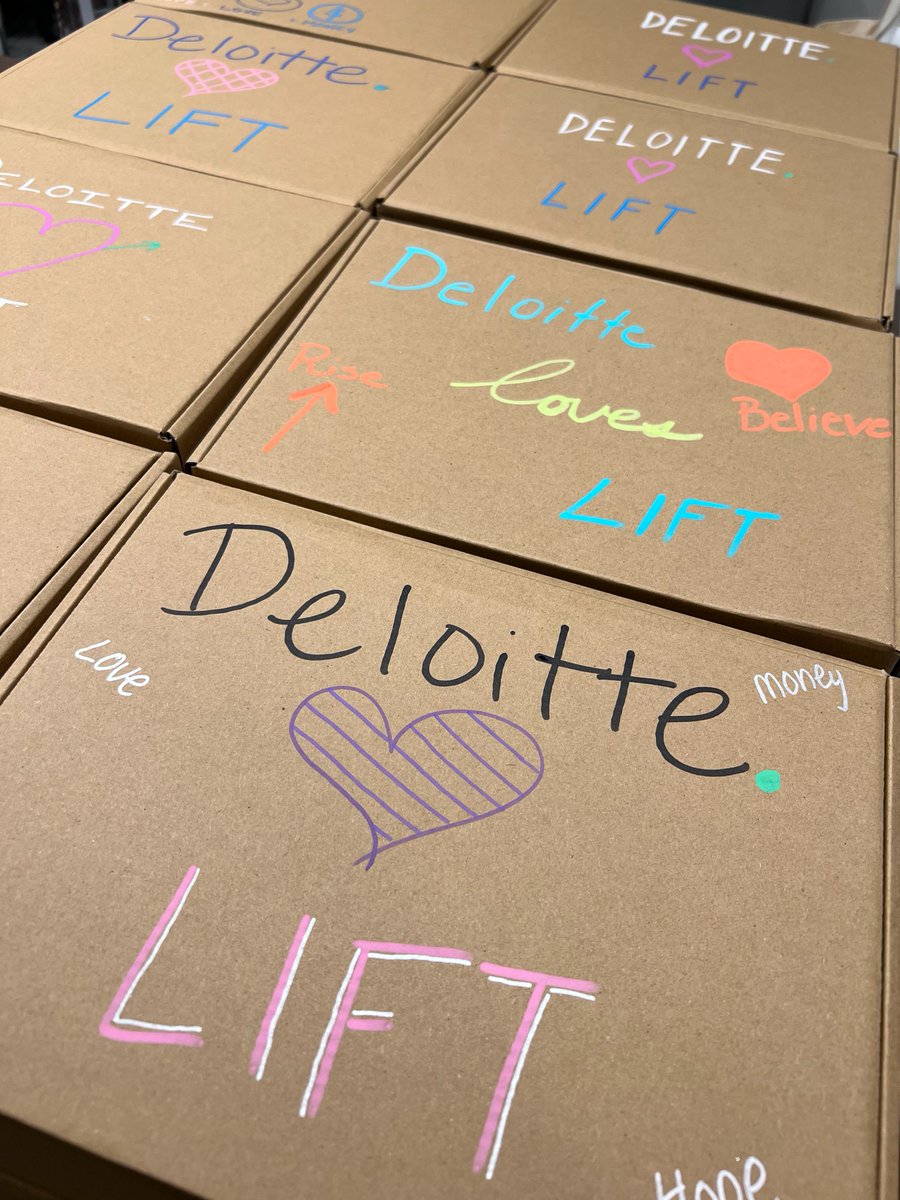 LOVE
MONEY
Deloitte.
LIFT
DELOITTE.
LIFT
DELOITTE.
LIFT
DELOITTE
Deloitte
Rise
loves
Believe
LIFT
Deloitte.
Love
money
LIFT
Hope